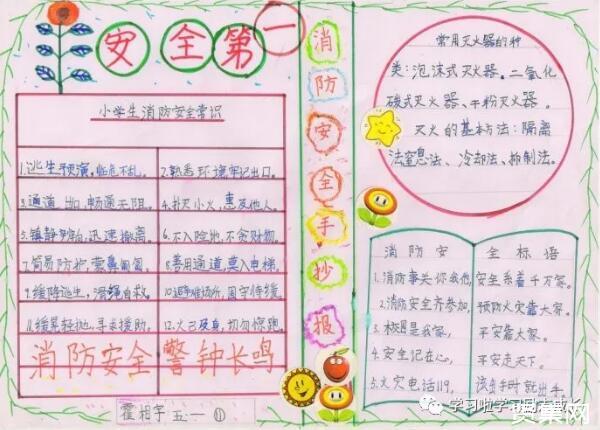 安全第一
小学生消防安全常识
1.逃生预演,临危不乱。
2.熟悉环境,牢记出口。
3.通道出口,畅通无阻。
4.扑灭小火,惠及他人。
5.镇静,迅速撤离。
6.不入险地,不贪财物。
7.简易防护,蒙鼻匍匐。
8.善用通道,莫入电梯。
9.缓降逃生,滑绳自救。
10.避难场所,固守待援。
11.缓晃轻抛,寻求援助。
12.火已及身,切勿惊跑。
消防安全 警钟长鸣
霍相宇 五一 ⑪
消防安全手抄报
常用灭火器的种
类:泡沫式灭火器。二氧化
碳式灭火器、干粉灭火器。
灭火的基本方法:隔离
法窒息法、冷却法、抑制法。
消防安全标语
1.消防事关你我他,安全系着千万家。
2.消防安全齐参加,预防火灾靠大家。
3.是我家,平安靠大家。
4.安全记在心,平安走天下。
5.火灾电话119,该出手时就出手。
学习啦学习
资集网